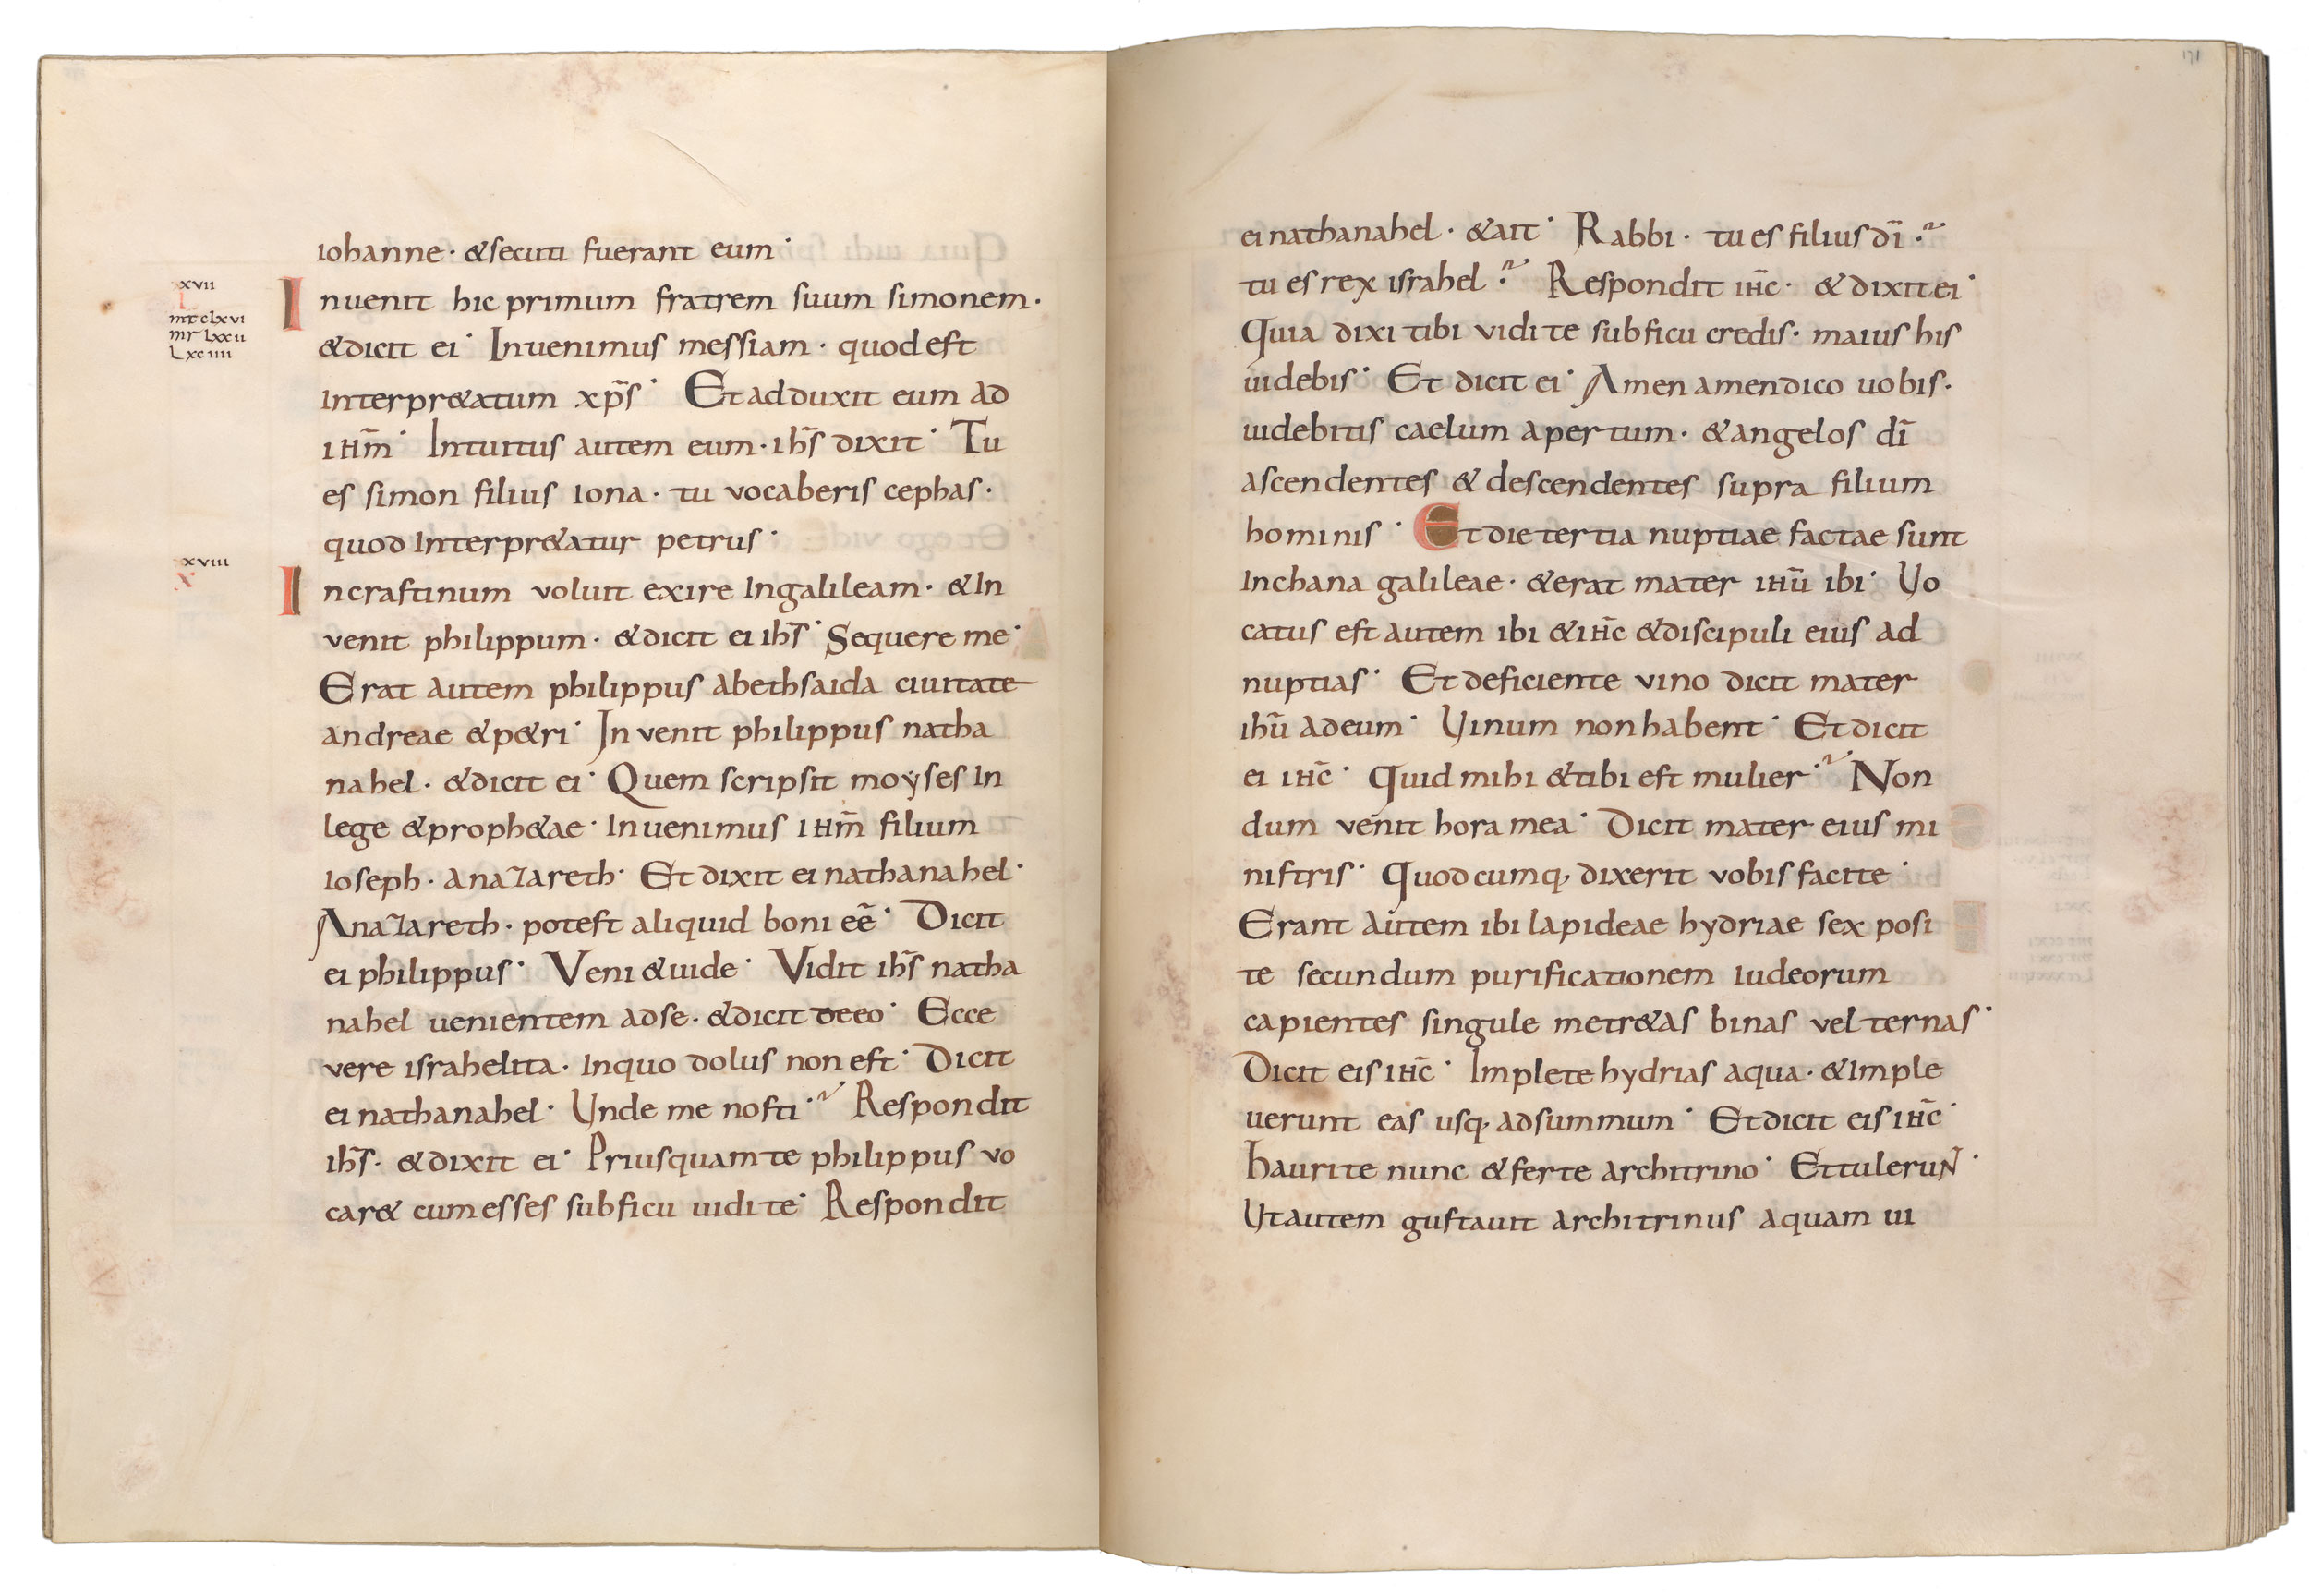 iohanne · & secuti fuerant eum ·
xvii
I
mt clxvi
mr lxxii
L xciiii
Inuenit hic primum fratrem suum simonem ·
& dicit ei · Inuenimus messiam · quod est
Interpr&atum xp̄s · Et adduxit eum ad
iħm̄ · Intuitus autem eum · ihs̄ dixit · Tu
es simon filius iona · tu vocaberis cephas ·
quod Interpr&atur petrus ·
xviii
X
In crastinum voluit exire In galileam · & In
venit philippum · & dicit ei ihs̄ · Sequere me ·
Erat autem philippus a bethsaida ciuitate
andreae & p&ri · Invenit philippus natha
nahel · & dicit ei · Quem scripsit moyses In
lege & proph&ae · Inuenimus iħm̄ filium
ioseph · a nazareth · Et dixit ei nathanahel ·
A nazareth · potest aliquid boni eē · Dicit
ei philippus · Veni & uide · Vidit ihs̄ natha
nahel uenientem ad se · & dicit de eo · Ecce
vere israhelita · In quo dolus non est · Dicit
ei nathanahel · Unde me nosti · Respondit
ihs̄ · & dixit ei · Priusquam te philippus vo
car& cum esses sub ficu uidi te · Respondit
171
ei nathanahel · & ait · Rabbi · tu es filius dī ·
tu es rex israhel · Respondit iħc̄ · & dixit ei ·
Quia dixi tibi vidi te sub ficu credis · maius his
uidebis · Et dicit ei · Amen amen dico uobis ·
uidebitis caelum apertum · & angelos dī
ascendentes & descendentes supra filium
hominis · Et die tertia nuptiae factae sunt
In chana galileae · & erat mater iħū ibi · Vo
catus est autem ibi & iħc̄ & discipuli eius ad
nuptias · Et deficiente vino dicit mater
ihū ad eum · Vinum non habent · Et dicit
ei iħc̄ · Quid mihi & tibi est mulier · Non
dum venit hora mea · Dicit mater eius mi
nistris · Quodcumq; dixerit vobis facite ·
Erant autem ibi lapideae hydriae sex posi
te secundum purificationem iudeorum
capientes singule metr&as binas vel ternas ·
Dicit eis iħc̄ · Implete hydrias aqua · & Imple
uerunt eas usq; ad summum · Et dicit eis iħc̄ ·
Haurite nunc & ferte architrino · Et tulerunt ·
Ut autem gustauit architrinus aquam ui